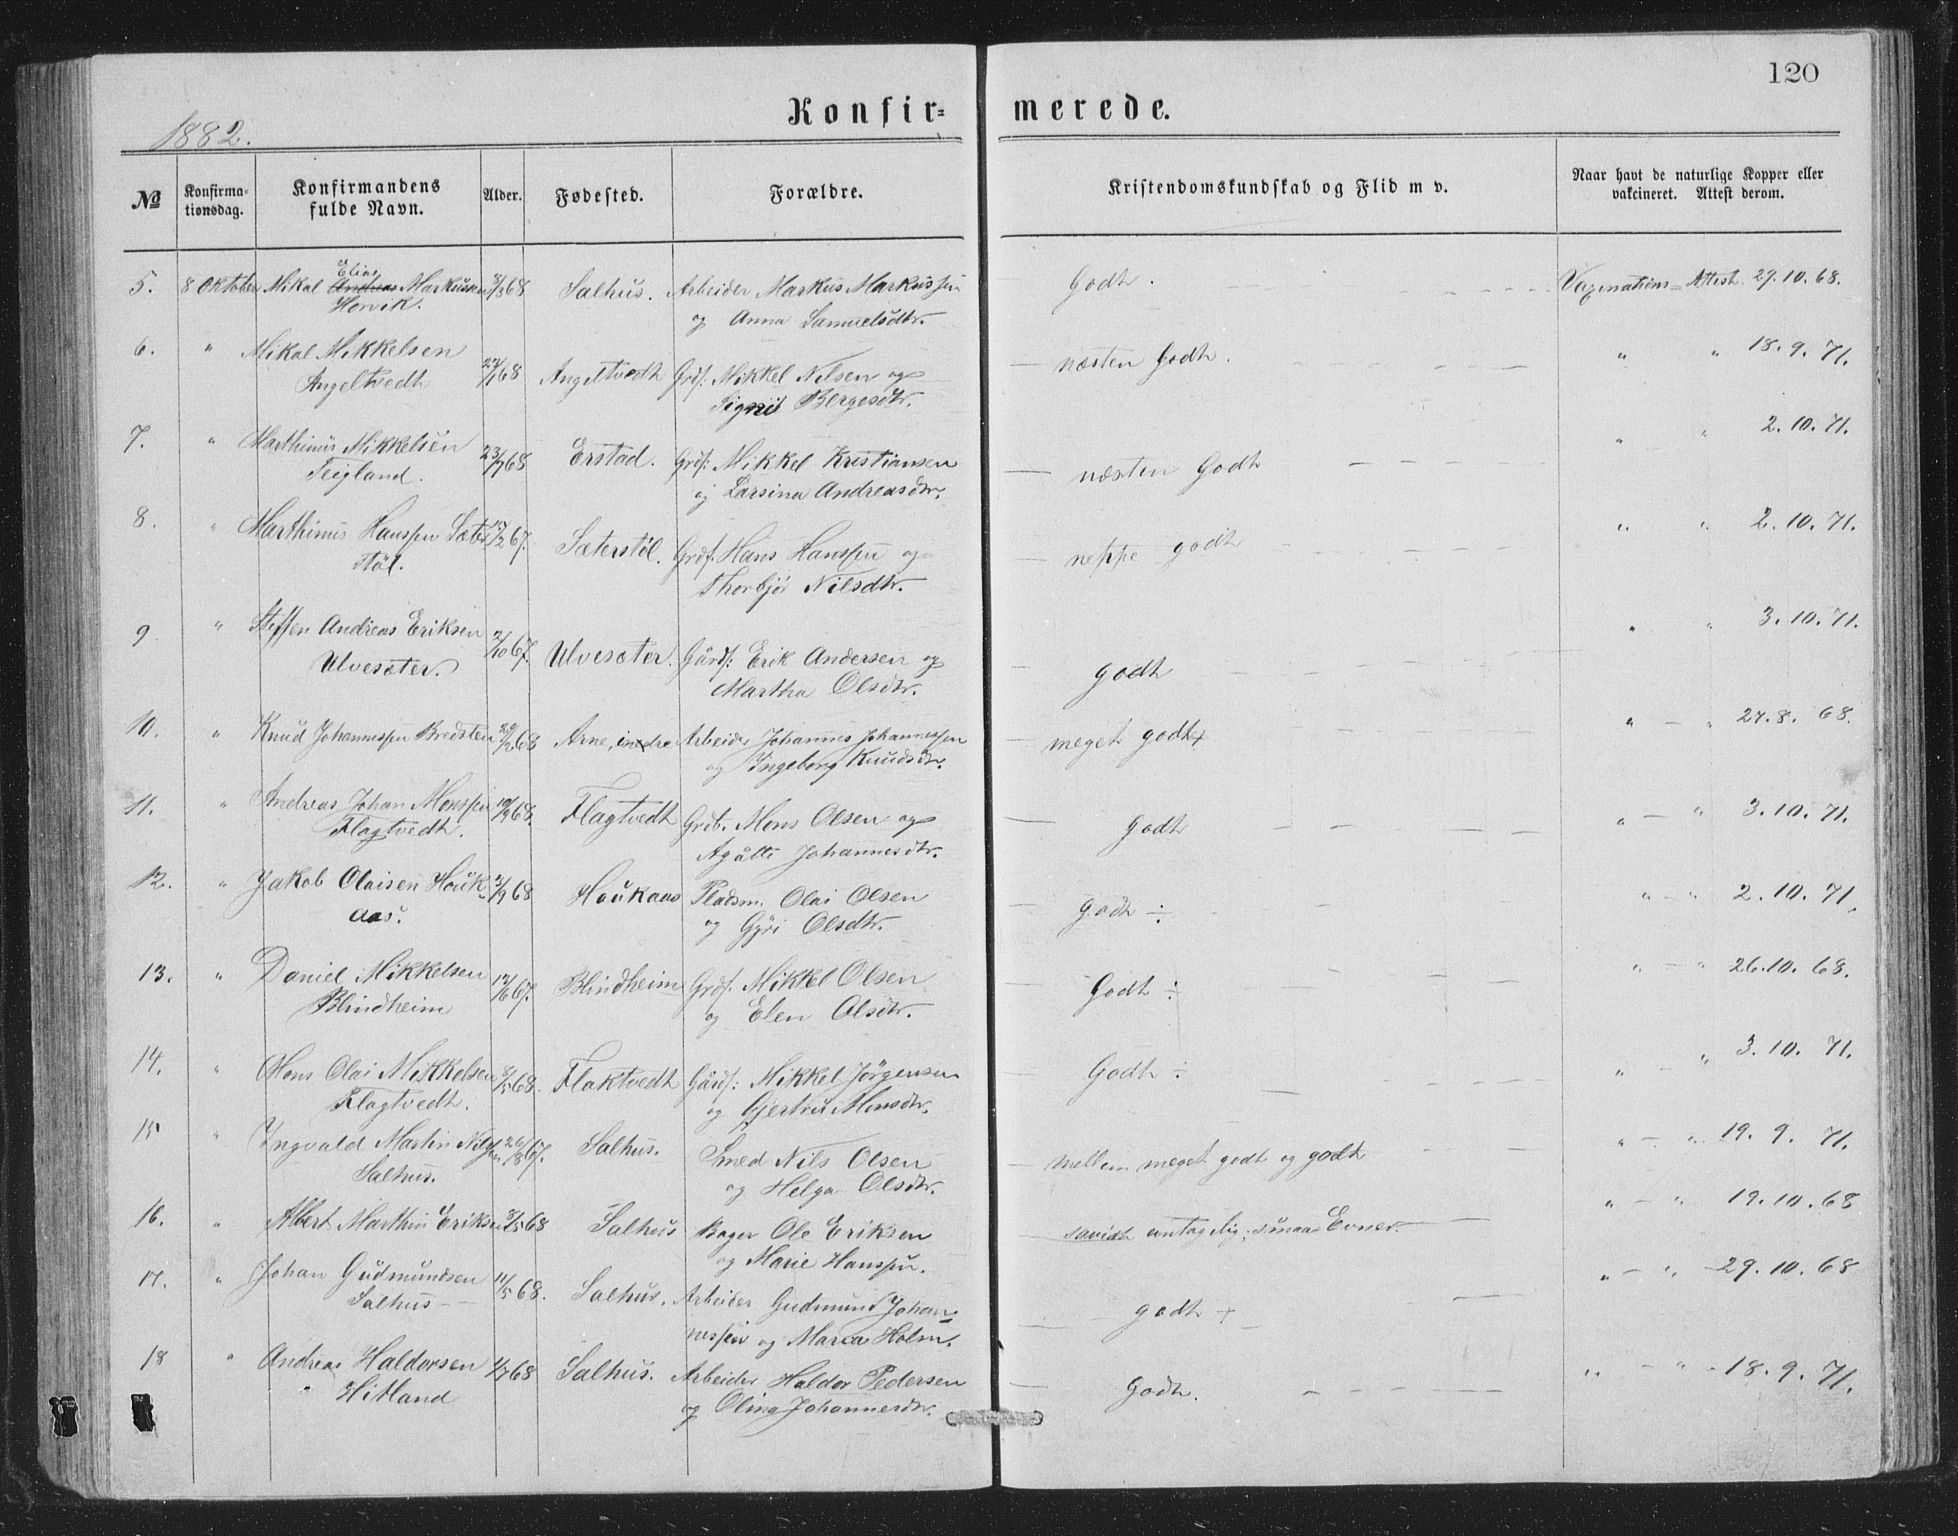 120
Konfir= merede.
1882.
No Konfirma- Konfirmandens Alder. Fødested. Forældre. Kristendomskundskab og Flid m v. Naar havt de naturlige Kopper eller
tionsdag. fulde Navn. vakcineret. Attest derom.
Elias
5. 8 Oktober Mikal Andreas Markusen 3/3 68 Salhus. Arbeider Markus Markussen Godt. Vaxinations=Attest. 29.10.68.
Horvik. og Anna Samuelsdtr.
6. " Mikal Mikkelsen 22/1 68 Angeltvedt Grdf. Mikkel Nilsen og næsten Godt. " " 18.9.71.
Angeltvedt Signi Bergesdtr.
7. " Marthinus Mikkelsen 23/7 68 Erstad. Grdf: Mikkel Kristiansen næsten Godt " " 2.10.71.
Teigland. og Larsina Andreasdtr.
8. " Marthinus Hanssen Sæter 67. Sæterstöl. Grdf. Hans Hanssen og neppe godt " " 2.10.71.
stöl. Thorbjör Nilsdtr.
9 " Steffen Andreas Eriksen 2/10 67. Ulvesæter. Gårdf: Erik Andersen og godt " " 3.10.71.
Ulvesæter. Martha Olsdtr.
10. " Knud Johannessen Bredsten 29/2 68 Arne, indre Arbeider Johannes Johannessen meget godt+ " — " 27.8.68.
og Ingeborg Knudsdtr.
11. " Andreas Johan Monssen 10/9 68. Flagtvedt Grdb. Mons Olsen og Godt " — " 3.10.71.
Flagtvedt. Agåtte Johannesdtr.
12. " Jakob Olaisen Houk- 2/9 68 Houkaas Pladsm. Olai Olsen Godt ÷ " — " 2.10.71.
aas. og Gyri Olsdtr.
13. " Daniel Mikkelsen 12/6 67. Blindheim Grdf. Mikkel Olsen Godt ÷ " — " 26.10.68.
Blindheim og Elen Olsdtr.
14. " Mons Olai Mikkelsen 8/5 68. Flaktvedt Gårdf: Mikkel Jörgensen Godt ÷ " — " 3.10.71.
Flagtvedt. og Gjertru Monsdtr.
15 " Ingvald Martin Nilssen 26/8 67. Salhus. Smed Nils Olsen mellem meget godt og godt " — " 19.9.71.
Salhus. og Helga Olsdtr.
16. " Albert Marthin Eriksen 3/5 68 Salhus Bager Ole Eriksen savidt antagelig; smaa Evner. " — " 19.10.68
og Marie Hanssen.
17. " Johan Gudmundsen 11/5 68. Salhus. Arbeider Gudmund Johan- godt + " — " 29.10.68
Salhus — nessen og Maria Holm.
18 " Andreas Haldorsen 1/7 68 Salhus. Arbeider Haldor Pedersen Godt. " — " 18.9.71.
" Hitland og Olina Johannesdtr.